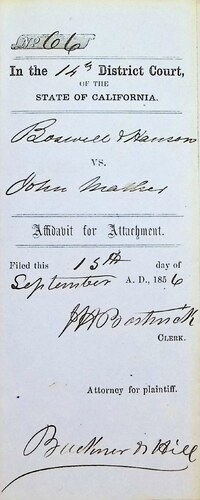 No. 66
In the 14th District Court,
OF THE
STATE OF CALIFORNIA.
Boswell & Hanson
VS.
John Mather
Affidavit for Attachment.
Filed this 15th day of
September A. D., 1856
Bostwick
CLERK.
Attorney for plaintiff.
Buckner & Hill